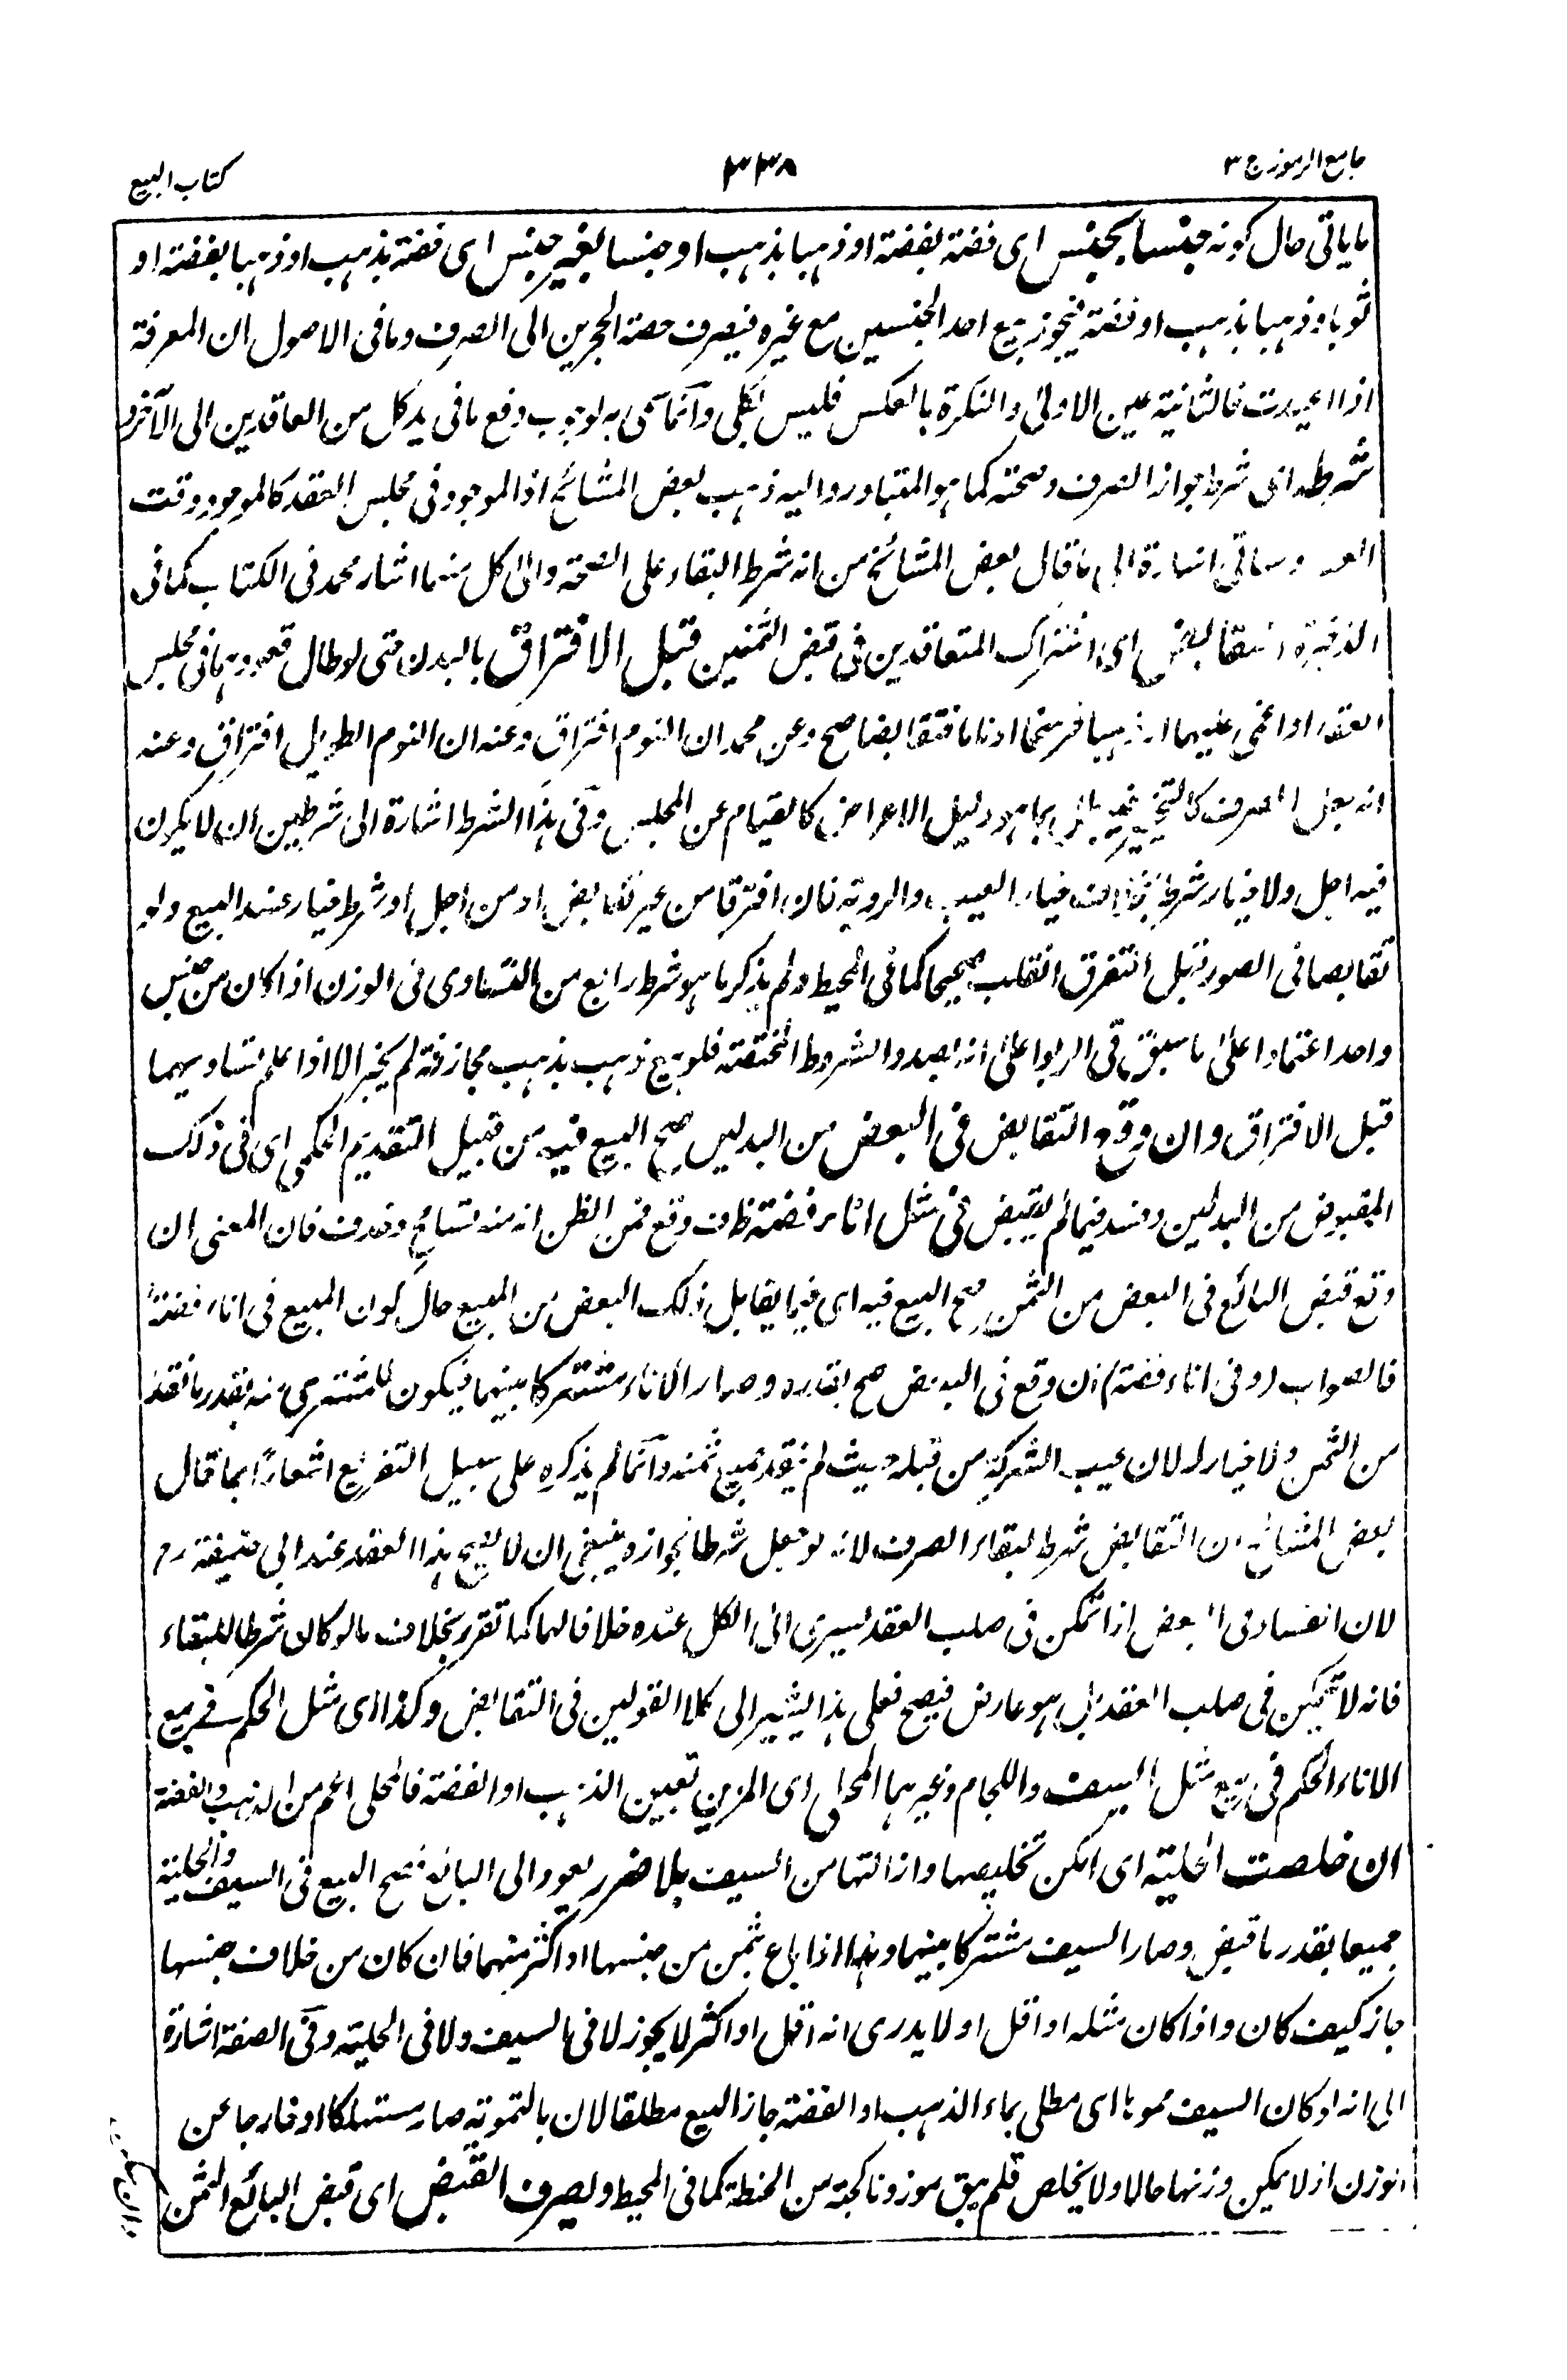 جامع الرموز ج ٣
٣٣٨
كتاب البيع
ما ياتى حال كونه جنسا بجنس اى فضة بفضة او ذهبا بذهب او جنسا بغير جنس اى فضة بذهب او ذهبا بفضة او
ثوبا و ذهبا بذهب او فضة فيجوز بيع احد الجنسين مع غيره فيصرف حصة الحجرين الى الصرف وما فى الاصول ان المعرفة
اذا اعيدت فالثانية عين الاولى والنكرة بالعكس فليس بكلى وانما سمى به لوجوب دفع ما فى يد كل من العاقدين الى الآخر و
شرطه اى شرط جواز الصرف وصحته كما هو المتبادر واليه ذهب بعض المشائخ اذ الموجود فى مجلس العقد كالموجود وقت
وسياتى اشارة الى ما قال بعض المشائخ من انه شرط البقاء على الصحة والى كل منهما اشار محمد فى الكتاب كما فى
الذخيرة التقابض اى اشتراك المتعاقدين فى قبض الثمنين قبل الافتراق بالبدن حتى لو طال قعودهما فى مجلس
العقد او اغمى عليهما او ذهبا فرسخا او ناما فتقابضا صح وعن محمد ان النوم افتراق وعنه ان النوم الطويل افتراق وعنه
انه جعل الصرف كالتخيير بما هو دليل الاعراض كالقيام عن المجلس وفى هذا الشرط اشارة الى شرطين ان لا يكون
فيه اجل ولا خيار شرط بخلاف خيار العيب والروية فان افترقا من غير تقابض او من اجل او شرط خيار عند البيع ولو
تقابضا فى الصور قبل التفرق انقلب صحيحا كما فى المحيط ولم يذكر ما هو شرط رابع من التساوى فى الوزن اذا كان من جنس
واحد اعتمادا على ما سبق فى الربوا على انه بصدد الشروط المختصة فلو بيع ذهب بذهب مجازفة لم يجز الا اذا علم تساويهما
قبل الافتراق وان وقع التقابض فى البعض من البدلين صح البيع فيه من قبيل التقديم الحكمى اى فى ذلك
المقبوض من البدلين وفسد فيما لم يقبض فى مثل اناء فضة ظرف وقع فمن الظن انه منه تسامح وتصرف فان المعنى ان
وقع قبض البائع فى البعض من الثمن صح البيع فيه اى فيما يقابل ذلك البعض من المبيع حال كون المبيع فى اناء فضة
فالصواب (وفى اناء فضة) ان وقع فى البعض صح بقدره وصار الاناء مشتركا بينهما فيكون للمشترى منه بقدر ما نقد
من الثمن ولا خيار له لان عيب الشركة من قبله حيث لم ينقد جميع ثمنه وانما لم يذكره على سبيل التفريع اشعارا بما قال
بعض المشائخ ان التقابض شرط لبقاء الصرف لانه لو جعل شرطا لجوازه ينبغى ان لا يصح هذا العقد عند ابى حنيفة رح
لان الفساد فى البعض اذا تمكن فى صلب العقد يسرى الى الكل عنده خلافا لهما كما تقرر بخلاف ما لو كان شرطا للبقاء
فانه لا تمكين فى صلب العقد بل هو عارض فيصح فعلى هذا يشير الى كلا القولين فى التقابض وكذا اى مثل الحكم فى بيع
الاناء الحكم فى بيع مثل السيف واللجام وغيرهما المحلى اى المزين بعين الذهب او الفضة فالمحلى اعم من الذهب والفضة
ان خلصت الحلية اى امكن تخليصها وازالتها من السيف بلا ضرر يعود الى البائع فصح البيع فى السيف والحلية
جميعا بقدر ما قبض وصار السيف مشتركا بينهما وهذا اذا باع بثمن من جنسها او اكثر منهما فان كان من خلاف جنسها
جاز كيف كان واذا كان مثله او اقل او لا يدرى انه اقل او اكثر لا يجوز لا فى السيف ولا فى الحلية وفى الصفة اشارة
الى انه لو كان السيف مموها اى مطلى بماء الذهب او الفضة جاز البيع مطلقا لان بالتمويه صار مستهلكا او خارجا عن
الوزن اذ لا يمكن وزنها حالا ولا يخلص فلم يبق موزونا كحبة من الحنطة كما فى المحيط ويصرف القبض اى قبض البائع الثمن